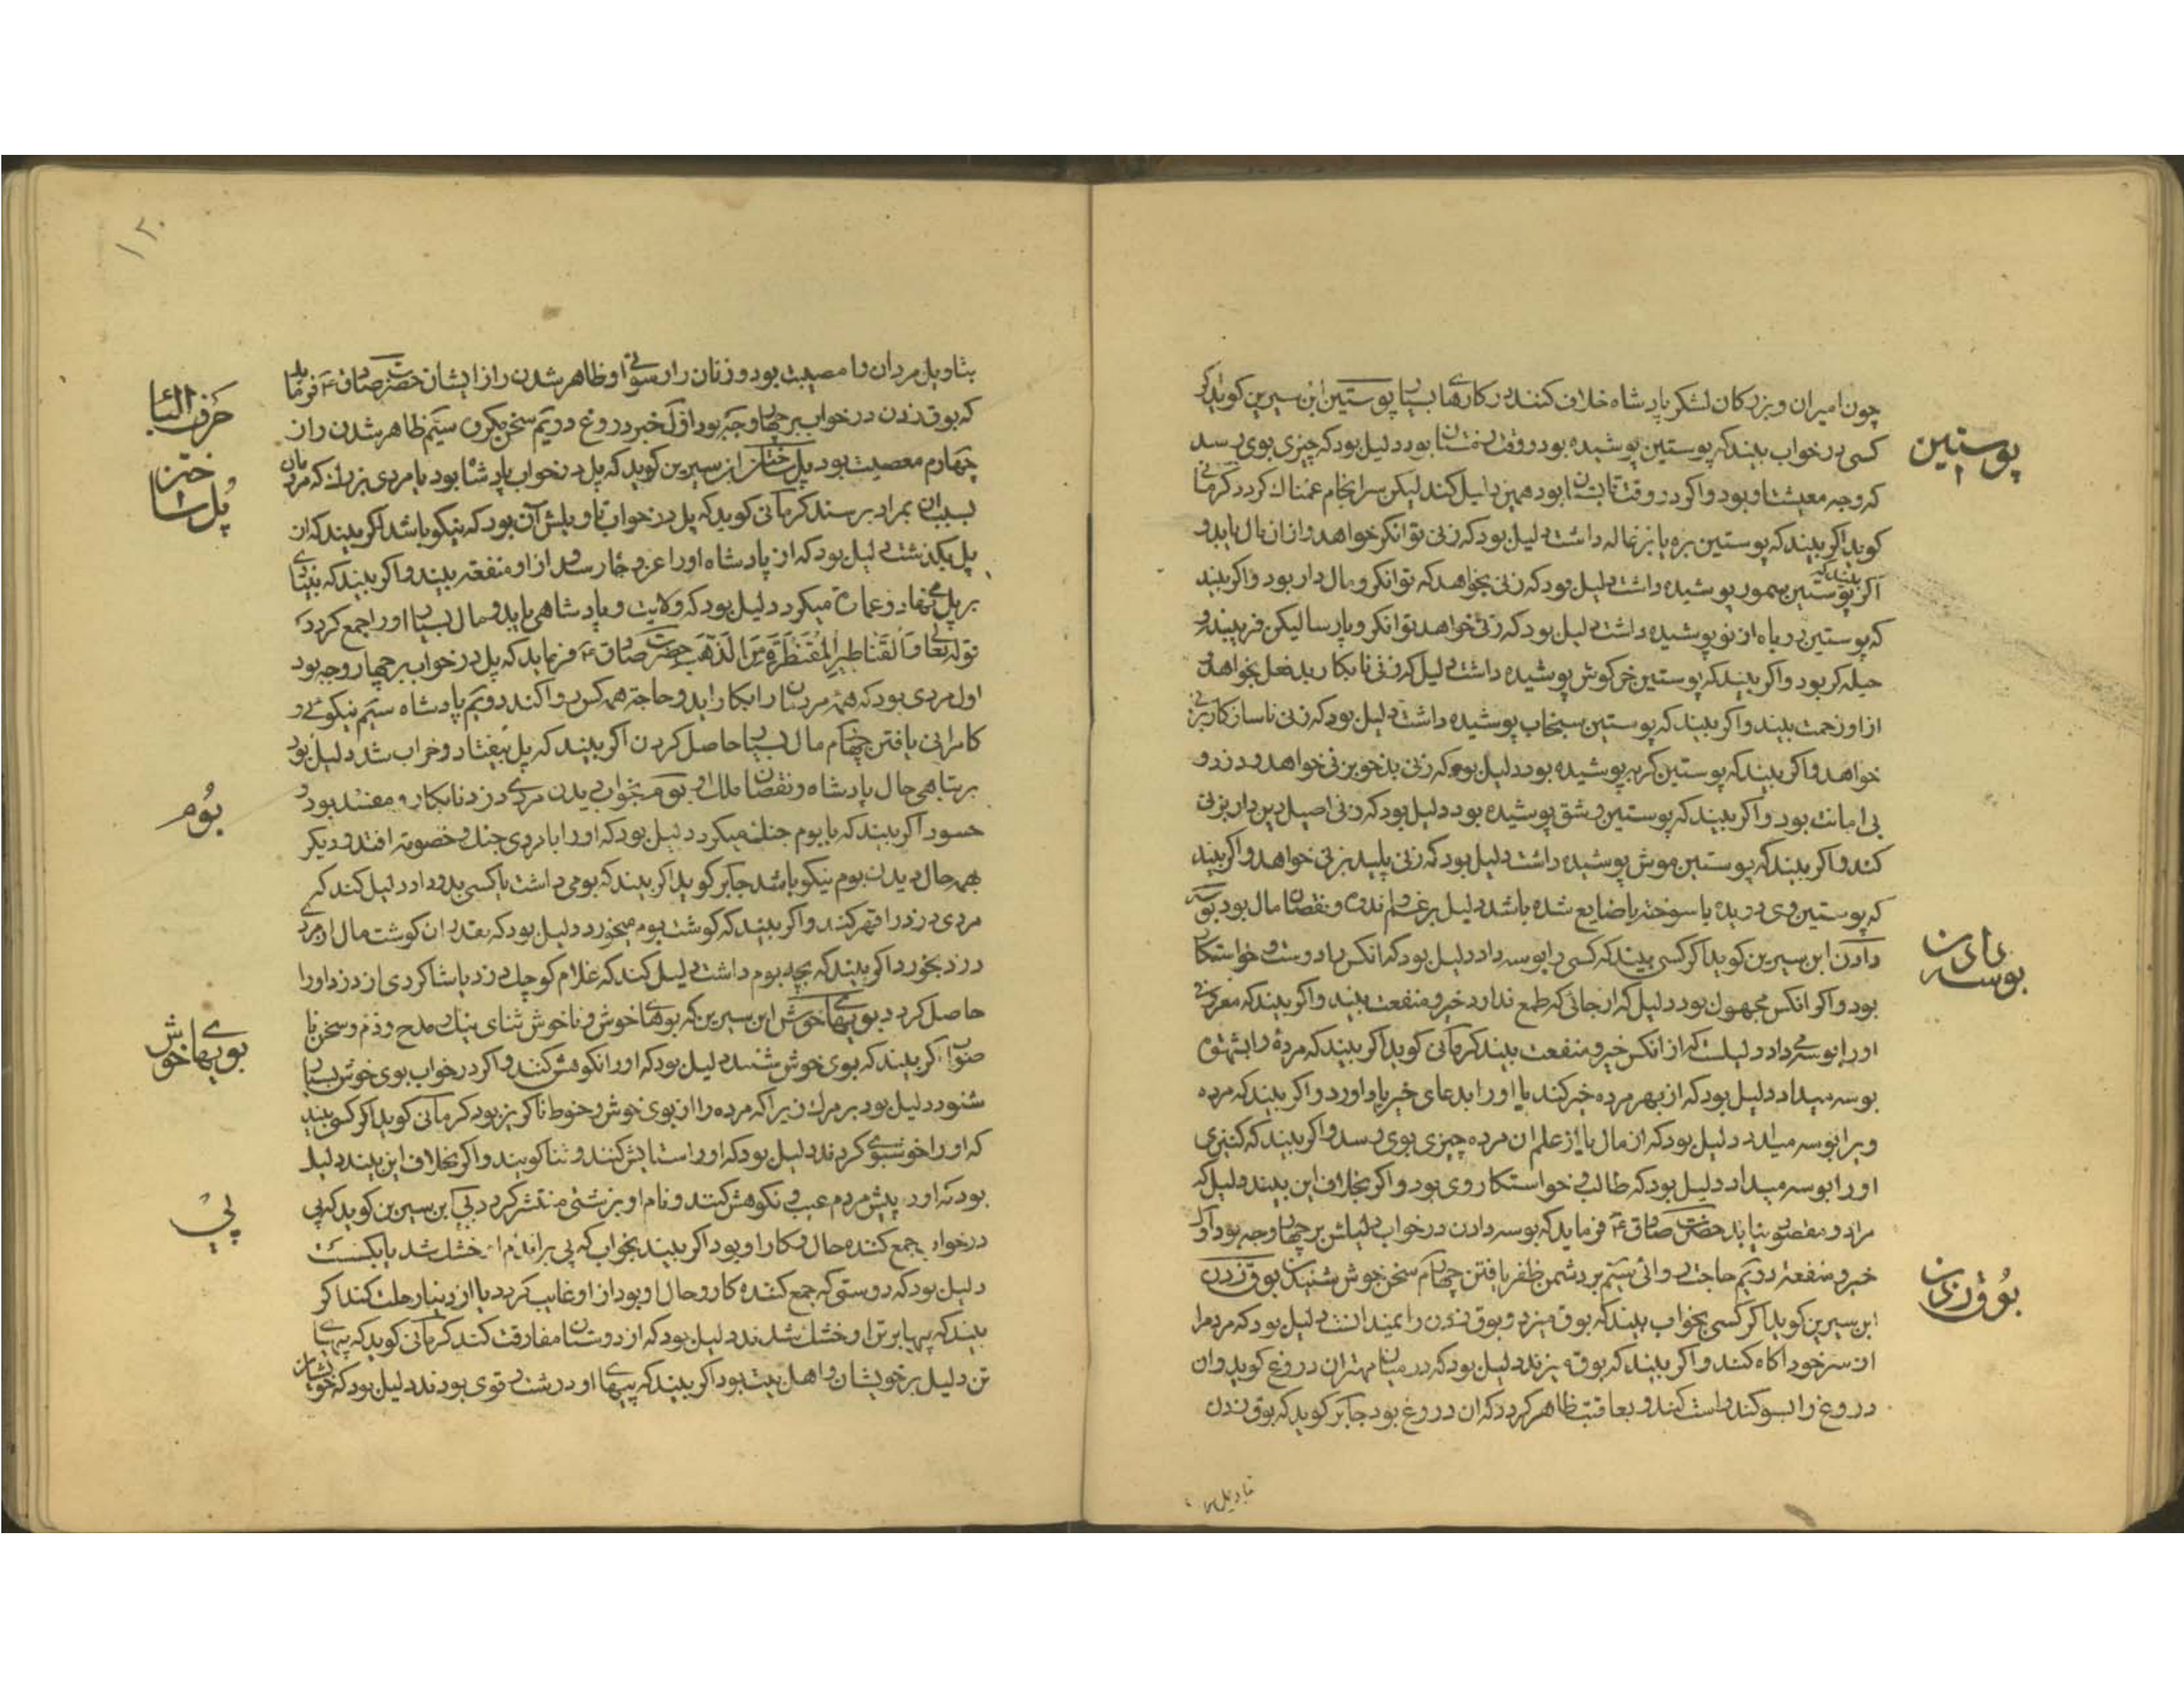 چون امیران و بزرکان لشکر پادشاه خلاف کنند در کارهاے بسیار پوستین ابن سیرین کوید اکر
پوستین
کسی در خواب بیند که پوستین پوشیده بود در وقت زمستان بود دلیل بود که چیزی بوی رسد
که وجه معیشت او بود و اکر در وقت تابستان بود همین دلیل کند لیکن سرانجام غمناک کردد کرمانی
کوید اکر بیند که پوستین بره یا بزغاله داشت دلیل بود که زنی توانکر خواهد و ازان مال یابد و
اکر بیند که پوستین سمور پوشیده داشت دلیل بود که زنی بخواهد که توانکر و مال دار بود و اکر بیند
که پوستین روباه از نو پوشیده داشت دلیل بود که زنی خواهد توانکر و پارسا لیکن فریبنده و
حیله کر بود و اکر بیند که پوستین خرکوش پوشیده داشت دلیل که زنی نابکار بدفعل بخواهد
از او زحمت بیند و اکر بیند که پوستین سنجاب پوشیده داشت دلیل بود که زنی ناسازکار بزنی
خواهد و اکر بیند که پوستین کربه پوشیده بود دلیل بود که زنی بدخو بزنی خواهد و دزد و
بی امانت بود و اکر بیند که پوستین وشق پوشیده بود دلیل بود که زنی اصیل دین دار بزنی
کند و اکر بیند که پوستین موش پوشیده داشت دلیل بود که زنی پلید بزنی خواهد و اکر بیند
که پوستین وی دریده یا سوخته یا ضایع شده باشد دلیل بر غم و اندوه و نقصان مال بود بوسه
دادن ابن سیرین کوید اکر کسی بیند که کسی را بوسه داد دلیل بود که انکس را دوست و خواستکار
بوسه دادن
بود و اکر انکس مجهول بود دلیل که از جائی که طمع ندارد خیر و منفعت بیند و اکر بیند که معروفی
او را بوسه می داد دلیلست که از انکس خیر و منفعت بیند کرمانی کوید اکر بیند که مردهٔ را بشهوت
بوسه میداد دلیل بود که از بهر مرده خیر کند یا او را بدعای خیر یاد اورد و اکر بیند که مرده
ویرا بوسه میداد دلیل بود که از مال یا از علم ان مرده چیزی بوی رسد و اکر بیند که کنیزی
او را بوسه میداد دلیل بود که طالب و خواستکار وی بود و اکر بخلاف این بیند دلیل که
مراد و مقصود نیابد حضرت صادق ع فرماید که بوسه دادن در خواب دلیلش بر چهار وجه بود اول
خیر و منفعت دویم حاجت روائی سیّم بر دشمن ظفر یافتن چهارم سخن خوش شنیدن بوق زدن
بُوق زدن
ابن سیرین کوید اکر کسی بخواب بیند که بوق میزد و بوق زدن را نمیدانست دلیل بود که مردم را
از سر خود اکاه کند و اکر بیند که بوق میزند دلیل بود که در میان مهتران دروغ کوید و ان
دروغ را بسوکند راست کند و بعاقبت ظاهر کردد که ان دروغ بود جابر کوید که بوق زدن
بتاویل مر
۱۳۰
بتاویل مردان را مصیبت بود و زنان را رسوائی و ظاهر شدن راز ایشان حضرت صادق ع فرماید
حرف الباء
که بوق زدن در خواب بر چهار وجه بود اوّل خبر دروغ دویّم سخن مکروه سیّم ظاهر شدن راز
چهارم معصیت بود پل ساختن ابن سیرین کوید که پل در خواب پادشاه بود یا مردی بزرك که مردمان
پُل ساختن
بسبب ان بمراد برسند کرمانی کوید که پل در خواب تاویلش آن بود که نیکو باشد اکر بیند که از
پل بکذشت دلیل بود که از پادشاه او را عز و جاه رسد و از او منفعت بیند و اکر بیند که بنیادی
بر پل می نهاد و عمارت میکرد دلیل بود که ولایت و پادشاهی یابد و مال بسیار او را جمع کردد
قوله تعالی وَالْقَنَاطِیرِ الْمُقَنْطَرَةِ مِنَ الذَّهَبِ حضرت صادق ع فرماید که پل در خواب بر چهار وجه بود
اول مردی بود که همه مردمان را بکار اید و حاجت همه کس روا کند دویّم پادشاه سیّم نیکوئی و
کامرانی یافتن چهارم مال بسیار حاصل کردن اکر بیند که پل بیفتاد و خراب شد دلیل بود
بر تباهی حال پادشاه و نقصان ملك او بوم بخواب دیدن مردی دزد نابکار و مفسد بود و
بُوم
حسود اکر بیند که با بوم جنك میکرد دلیل بود که او را با مردی جنك و خصومت افتد و دیکر
بهر حال دیدن بوم نیکو باشد جابر کوید اکر بیند که بومی داشت یا کسی بدو داد دلیل کند که
مردی دزد را قهر کند و اکر بیند که کوشت بوم میخورد دلیل بود که بقدر ان کوشت مال ان مرد
دزد بخورد و اکر بیند که بچه بوم داشت دلیل کند که غلام کوچك دزد یا شاکردی از دزد او را
حاصل کردد بویهای خوش ابن سیرین که بوهای خوش و ناخوش ثنای نیك و مدح و ذم و سخن نا
بویهاے خوش
صواب اکر بیند که بوی خوش شنید دلیل بود که او را نکوهش کنند و اکر در خواب بوی خوش بسیار
شنود دلیل بود بر مرك زیرا که مرده را از بوی خوش و حنوط ناکزیر بود کرمانی کوید اکر کسی بیند
که او را خوشبوے کردند دلیل بود که او را ستایش کنند و ثنا کویند و اکر بخلاف این بیند دلیل
بود که او را پیش مردم عیب و نکوهش کنند و نام او بزشتی منتشر کردد پی ابن سیرین کوید که پی
پی
در خواب جمع کننده حال و کار او بود اکر بیند بخواب که پی بر اندام او خشك شد یا بکسست
دلیل بود که دوستی که جمع کننده کار و حال او بود از او غایب کردد یا از دنیا رحلت کند اکر
بیند که پیها بر تن او خشك شدند دلیل بود که از دوستان مفارقت کند کرمانی کوید که پی هاے
تن دلیل بر خویشان و اهل بیت بود اکر بیند که پیهاے او درشت و قوی بودند دلیل بود که خویشان